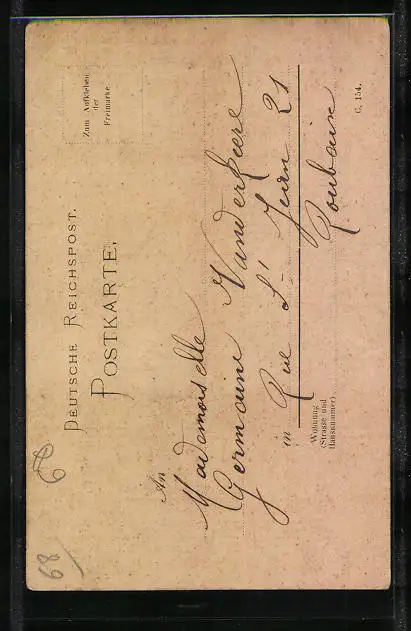 DEUTSCHE REICHSPOST.
POSTKARTE.
Zum Aufkleben
der
Freimarke
An
Mademoiselle
Germaine Vanderkeere
in Rue St Jean 21
Roubaix
Wohnung
(Strasse und
Hausnummer)
C. 154.
68